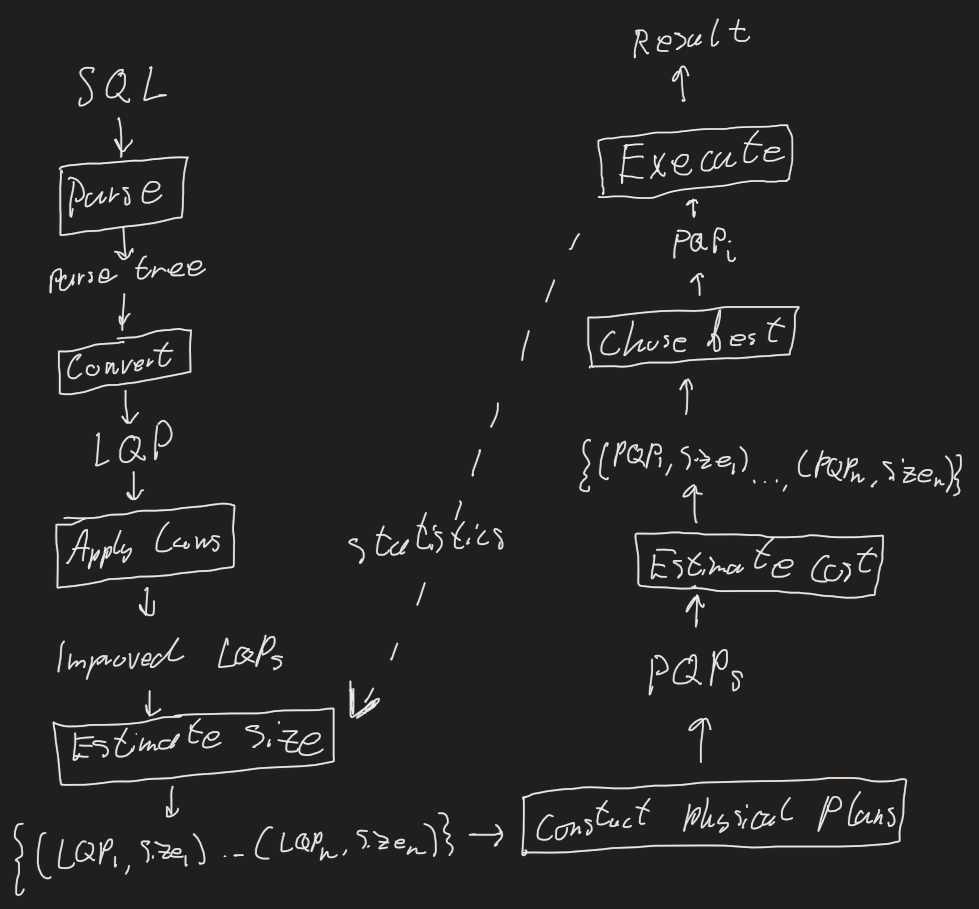 SQL
Parse
Parse tree
Convert
LQP
Apply Laws
Improved LQPs
Estimate size
{(LQP₁, size₁) ... (LQPₙ, sizeₙ)}
statistics
Constuct physical Plans
PQPs
Estimate Cost
{(PQP₁, size₁) ..., (PQPₙ, sizeₙ)}
Chose best
PQPᵢ
Execute
Result